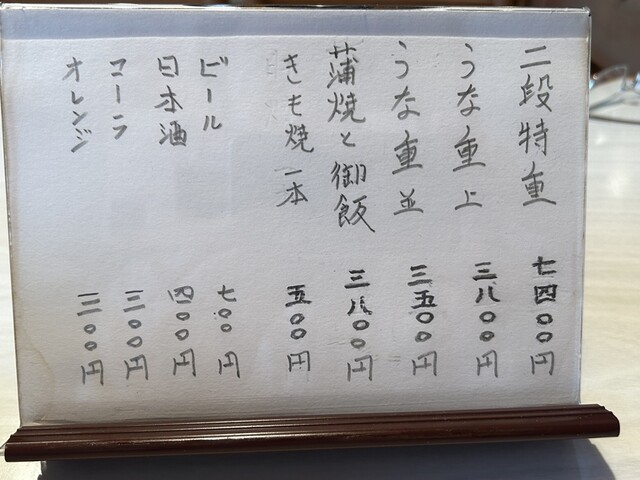 二段特重 七四〇〇円
うな重上 三八〇〇円
うな重並 三五〇〇円
蒲焼と御飯 三八〇〇円
きも焼一本 五〇〇円
ビール 七〇〇円
日本酒 四〇〇円
コーラ 三〇〇円
オレンジ 三〇〇円